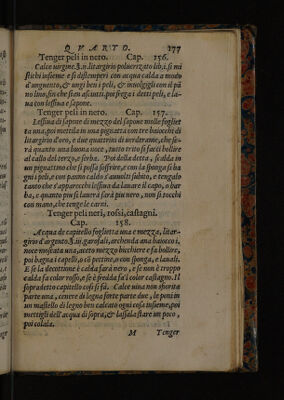 QVARTO. 177
Tenger peli in nero. Cap. 156.
Calce uirgine.℥.ii. litargirio poluerizato lib.i. si mi
stichi insieme e si distemperi con acqua calda a modo
d'ungnento, & ungi ben i peli, & inuolgigli con il pã
no lino, sin che sien asciutti, poi frega i detti peli, e la-
ua con lessiua e sapone.
Tenger peli in nero. Cap. 157.
Lessiua di sapone di mezzo del sapone molle fogliet
ta una, poi mettila in una pignatta con tre baiocchi di
litargirio d'oro, e due quattrini di uerderame, che se-
rà quanto una buona noce, tutto trito si facci bollire
al callo del terzo, e serba. Poi della detta, scalda in
un pignattino che si possa soffrire, e con la sponga si ba
gni i peli, e con panno caldo s'auuolti subito, e tengalo
tanto che s'apparecchi lessiua da lauare il capo, o bar
ba, e quanto piu si lauerà sarà piu nero, non si tocchi
con mano, che tenge le carni.
Tenger peli neri, rossi, castagni.
Cap. 158.
Acqua de capitello foglietta una e mezza, litar-
girio d'argento.℥.iii. garofali, archenda una baiocco.i.
noce moscata una, aceto mezzo bicchiere e fa bollire,
poi bagna i capelli, o cõ pettine, o con sponga, e lanali.
E se la decottione è calda farà nero, e se non è troppo
calda fa color rosso, e se è fredda fa'l color castagno. Il
sopradetto capitello cosi si fà. Calce uiua non isiorita
parte una, cenere di legna forte parte due, le poni in
un mastello di legno ben calcato ogni cosa insieme, poi
mettigli dell'acqua di sopra, & lassala stare un poco,
poi colala.
M Tenger